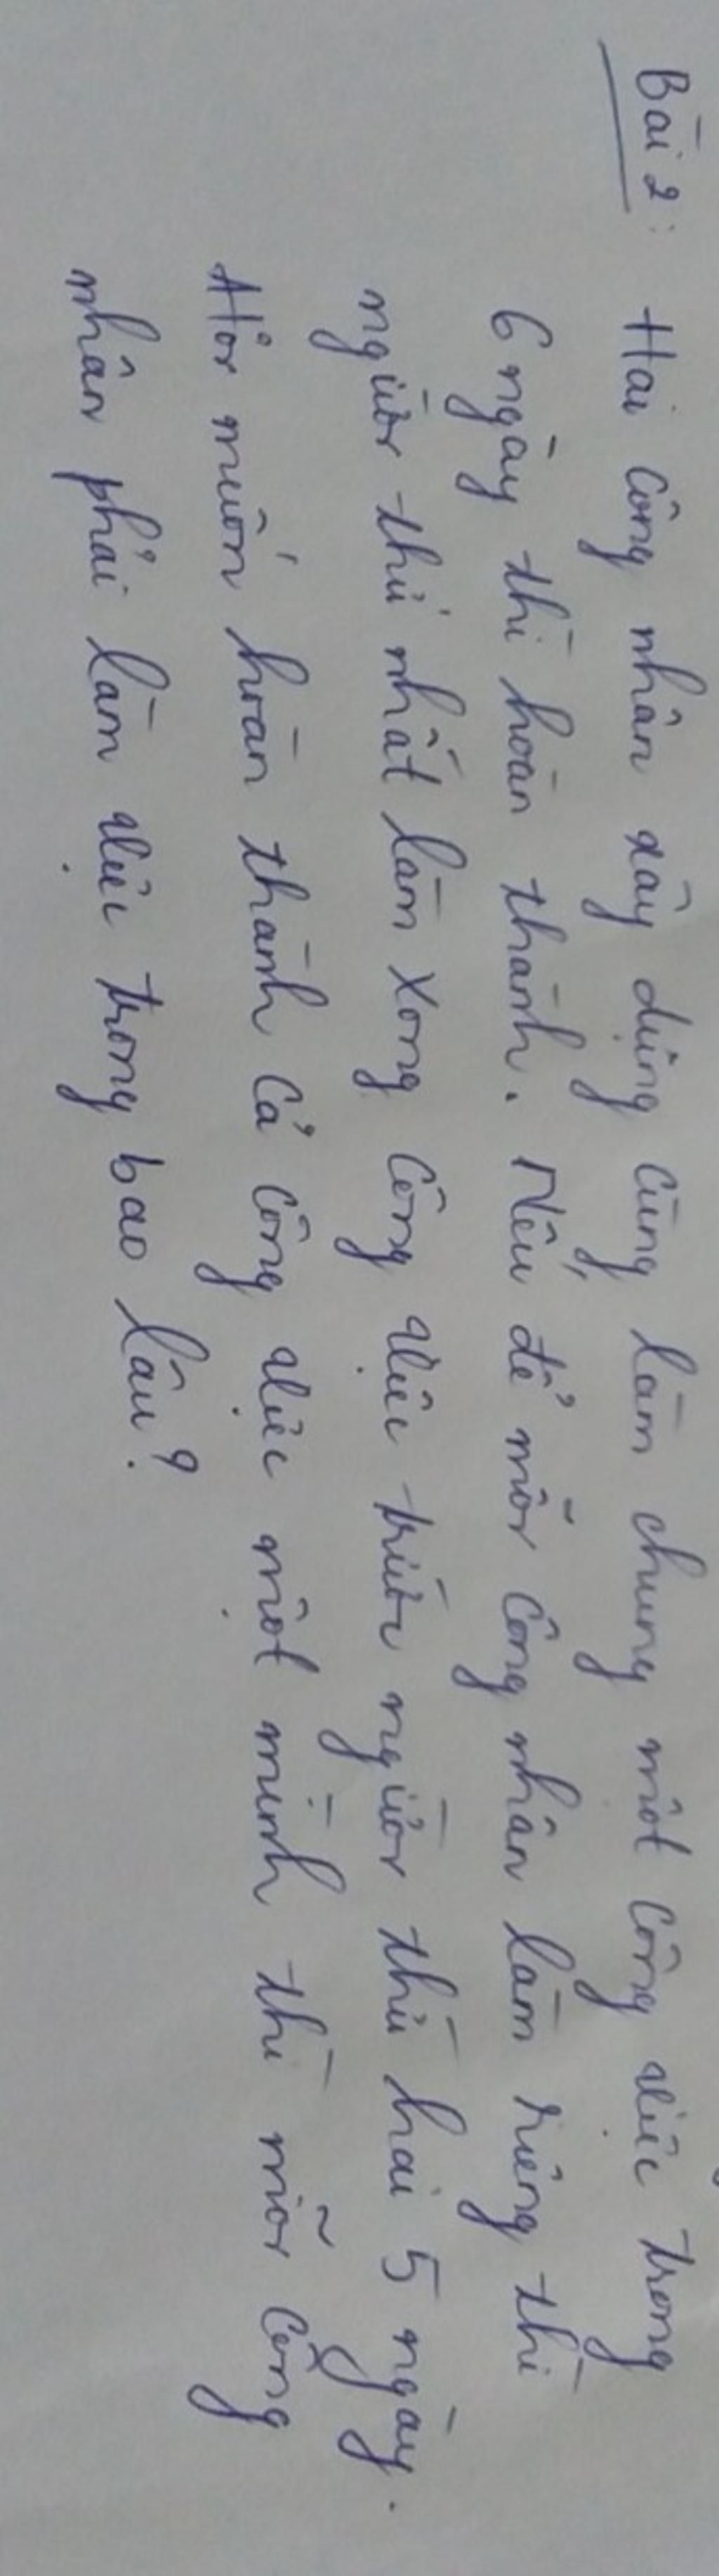 Bài 2: Hai công nhân xây dựng cùng làm chung một công việc trong
6 ngày thì hoàn thành. Nếu để mỗi công nhân làm riêng thì
người thứ nhất làm xong công việc trước người thứ hai 5 ngày.
Hỏi muốn hoàn thành cả công việc một mình thì mỗi công
nhân phải làm việc trong bao lâu?